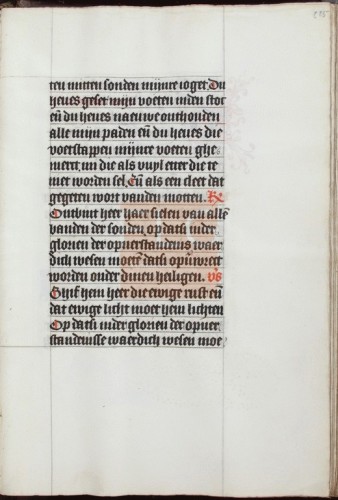 ten mitten sonden mijnre ioget. Du
heues geset mijn voeten inden stoc
eñ du heues nauwe onthouden
alle mijn paden eñ du heues die
voetstappen mijnre voeten ghe
merct, un die als vuyl etter die te
niet worden sel, Eñ als een cleet dat
gegeten wort vanden motten. R
Ontbint heer haer sielen van allē
banden der sonden, op datsi inder
glorien der opuerstandenis waer
dich wesen moetē datsi opūwect
worden onder dinen heiligen. vs
Ghift hem heer die ewige rust eñ
dat ewige licht moet hem lichten
Op datsi inder glorien der opuer
standenisse waerdich wesen moe